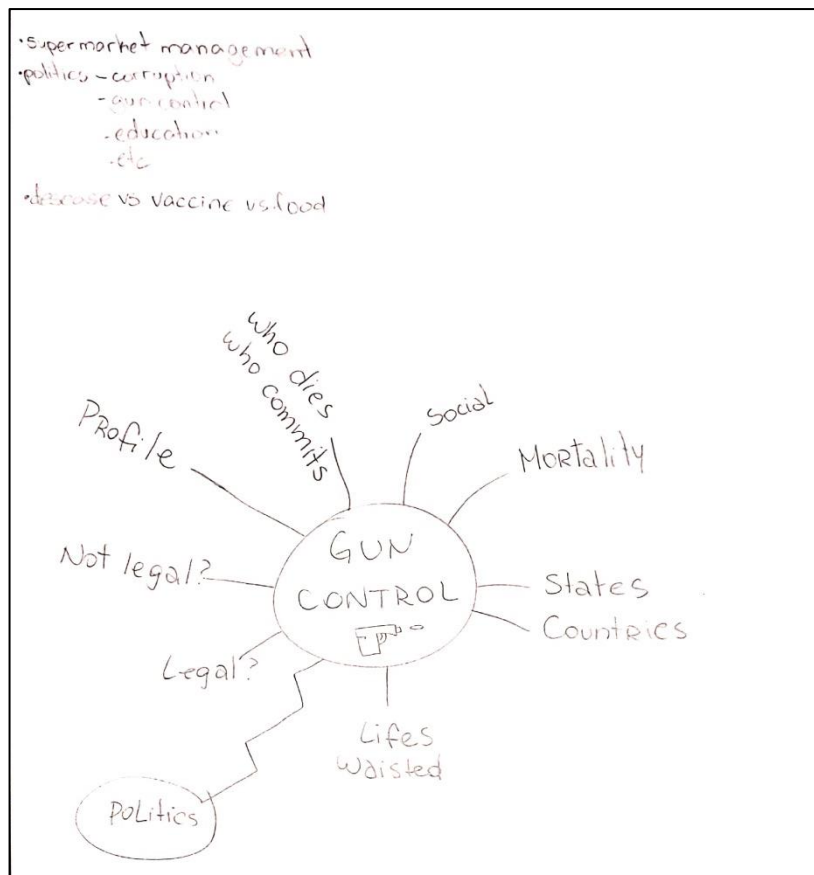 ·supermarket management
·politics - corruption
- gun control
- education
- etc
·desease vs vaccine vs. food
who dies
who commits
Social
PRofile
MoRtality
GUN
CONTROL
Not legal?
States
Countries
Legal?
Lifes
Waisted
PoLitics